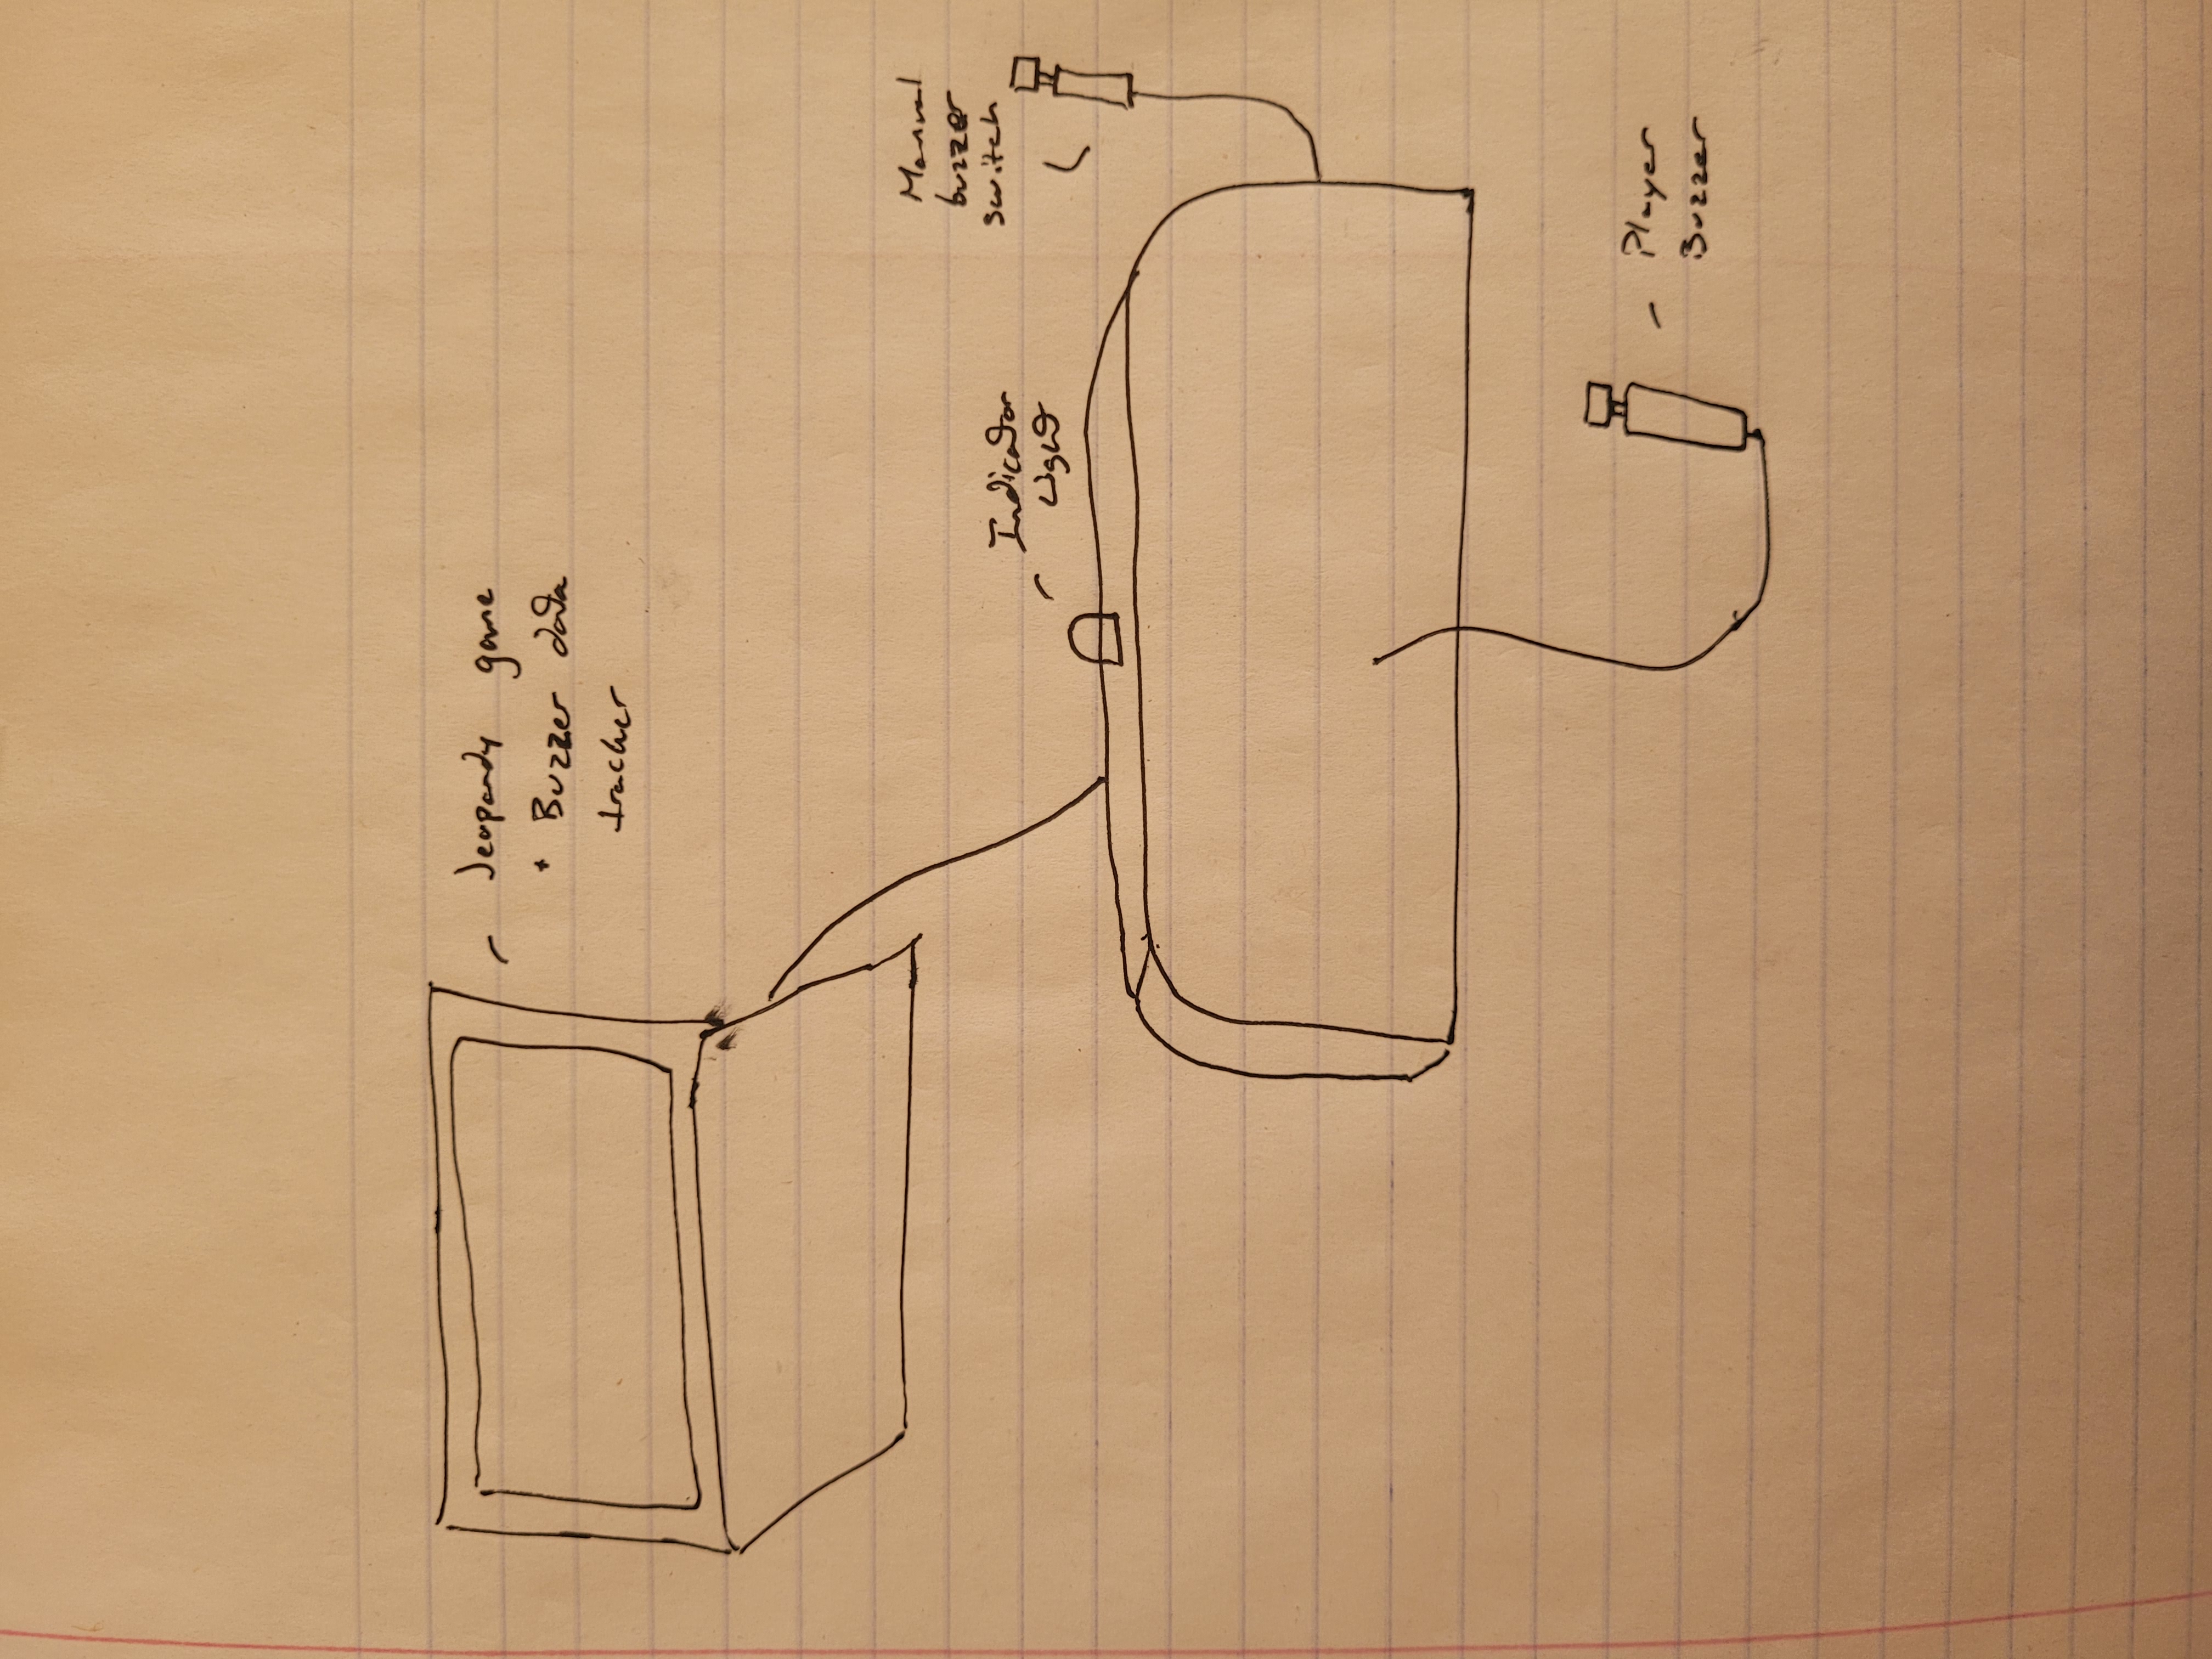 Jeopardy game
+ Buzzer data
tracker
Manual
buzzer
switch
Indicator
Light
Player
Buzzer